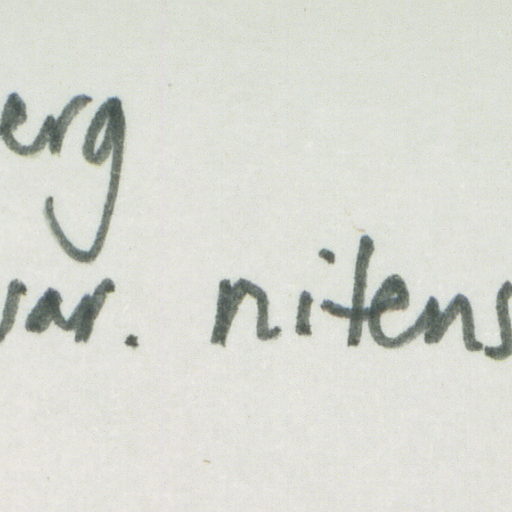 erg
var. nitens